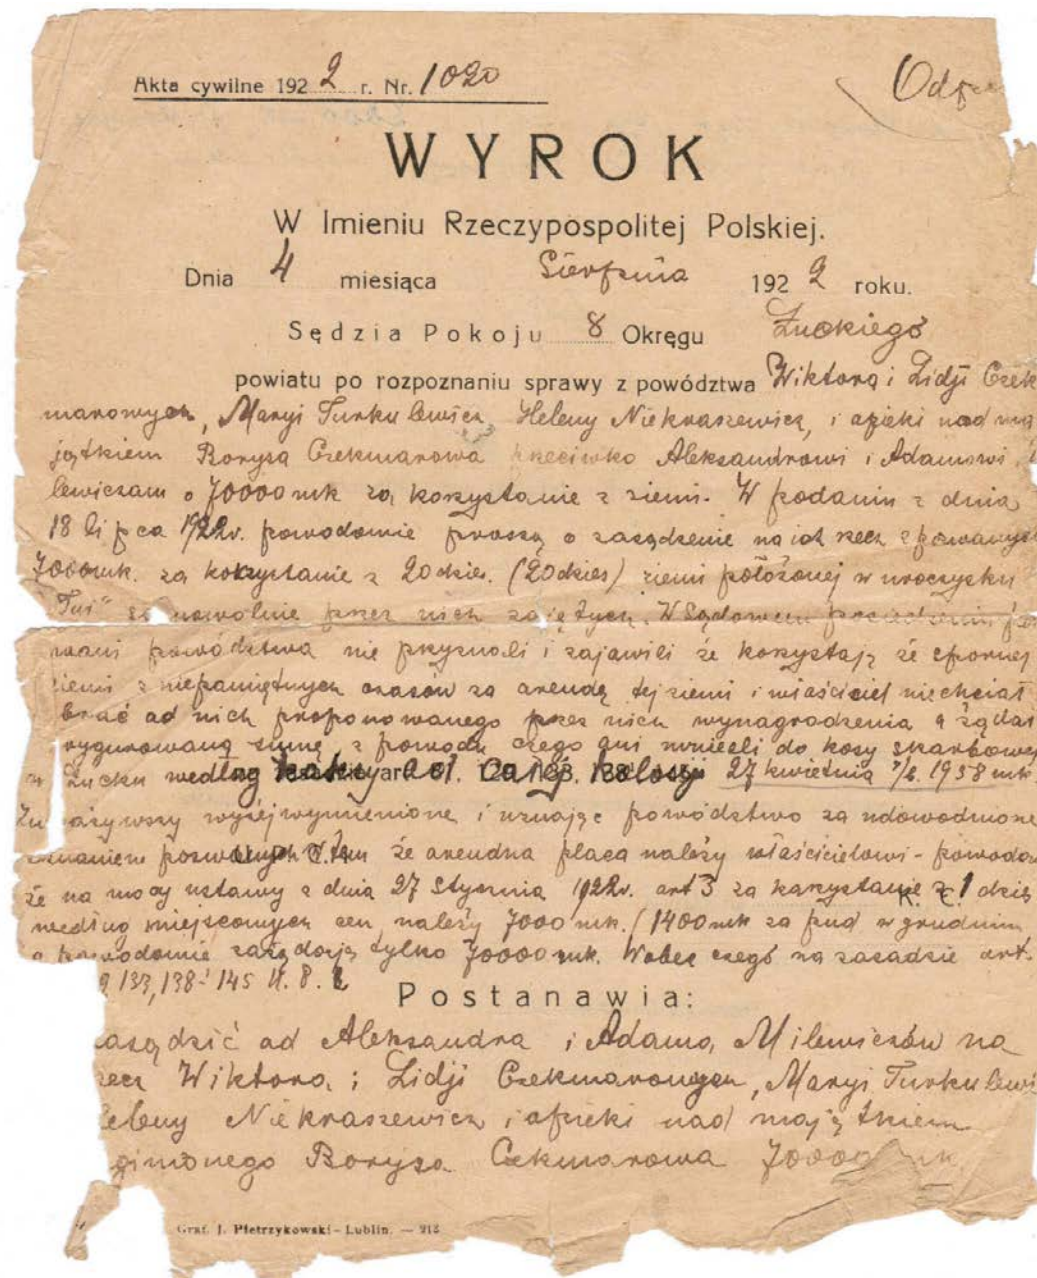 Akta cywilne 1922 r. Nr. 1020
WYROK
W Imieniu Rzeczypospolitej Polskiej.
Dnia 4 miesiąca Sierpnia 1922 roku.
Sędzia Pokoju 8 Okręgu Łuckiego
powiatu po rozpoznaniu sprawy z powództwa Wiktora i Lidji Czek
marowych, Maryi Turkulewicz, Heleny Niekraszewicz, i opieki nad ma
jątkiem Borysa Czekmarowa przeciwko Aleksandrowi i Adamowi
lewiczam o 70000 mk za korzystanie z ziemi. W podaniu z dnia
18 lipca 1922 r. powodowie proszą o zasądzenie na ich rzecz z pozwanych
70000 mk. za korzystanie z 20 dzies. (20 dzies) ziemi położonej w uroczysku
samowolnie przez nich zajętych. W Sądowem posiedzeniu
powództwa nie przyznali i zajawili że korzystają ze spornej
ziemi z niepamiętnych czasów za arendę tej ziemi i właściciel niechciał
brać od nich proponowanego przez nich wynagrodzenia a żądał
sumę, z powodu czego oni wnieśli do kasy skarbowej
w Łucku według 27 kwietnia 1958 mk.
wyżej wymienione i uznając powództwo za udowodnione
że arendna płaca należy właścicielowi - powodom
że na mocy ustawy z dnia 27 Stycznia 1922 r. art 3 za korzystanie z 1 dzies
według miejscowych cen, należy 7000 mk. (1400 mk za pud w grudniu
a powodowie żądają tylko 70000 mk. Wobec czego na zasadzie art.
133, 138 - 145
Postanawia:
zasądzić od Aleksandra i Adama Milewiczów na
rzecz Wiktora i Lidji Czekmarowych, Maryi Turkulewi
Heleny Niekraszewicz i opieki nad majątkiem
Borysa Czekmarowa 70000 mk.
Graf. J. Pietrzykowski - Lublin. — 213